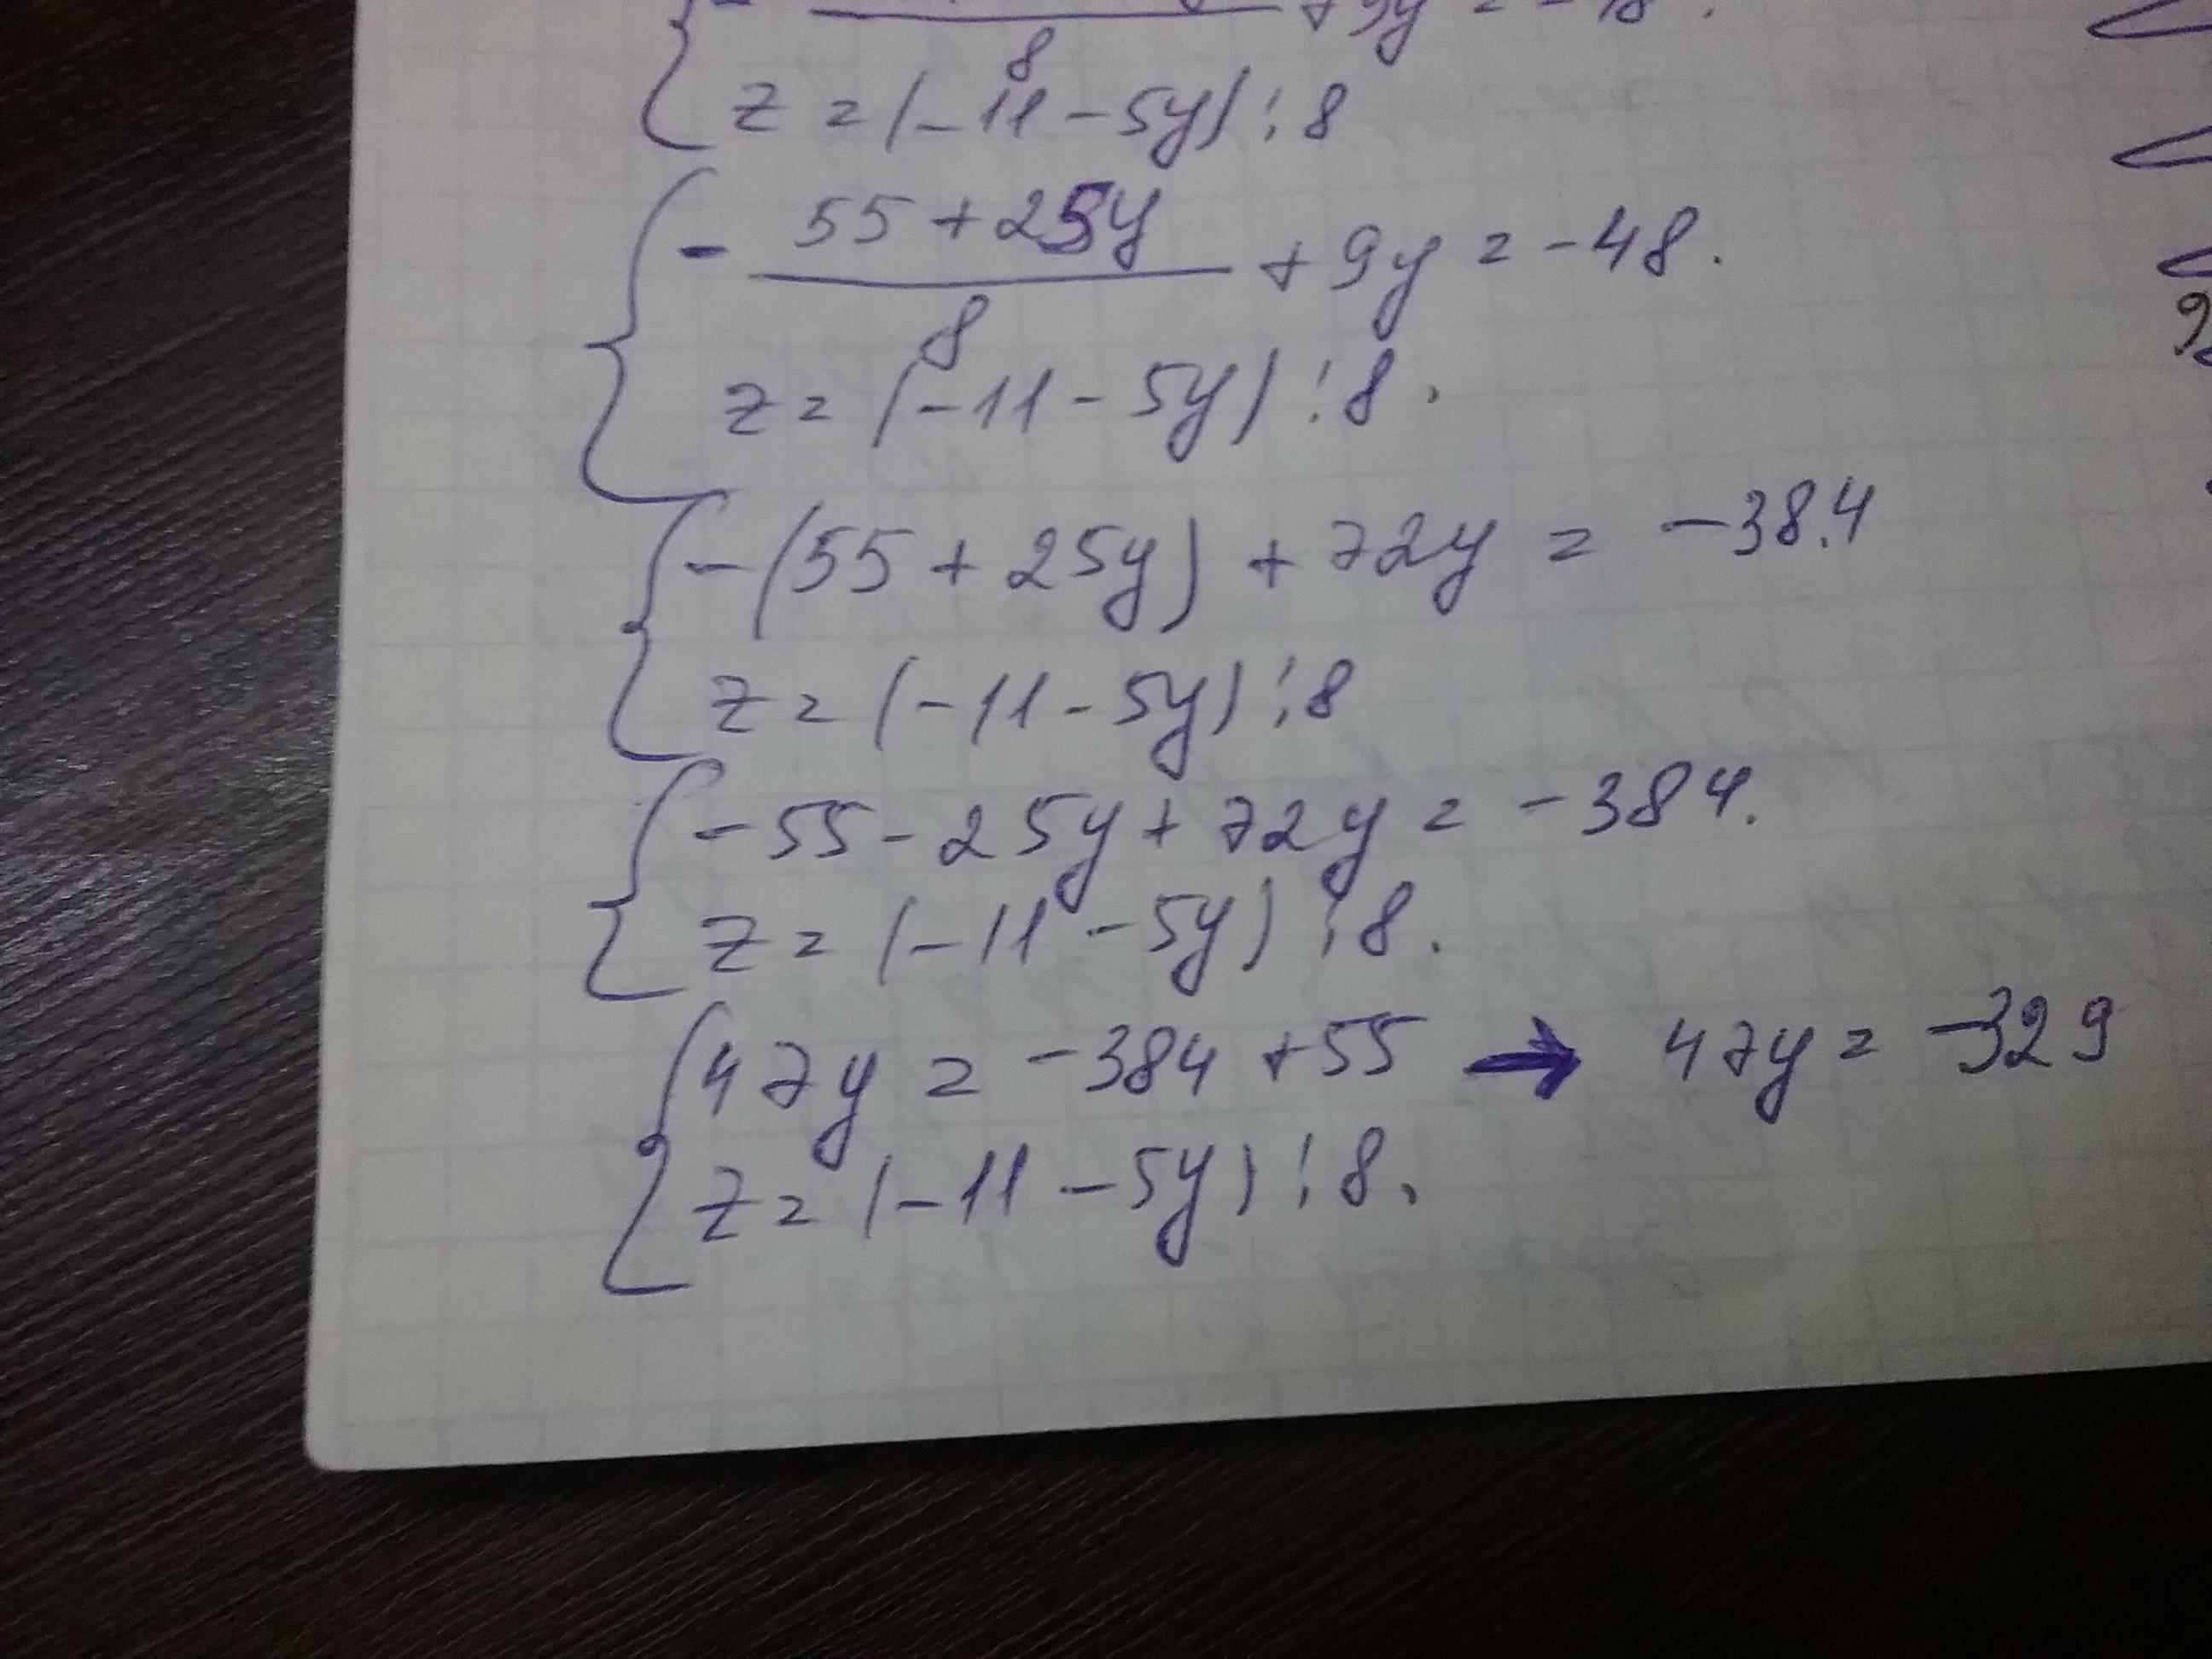 8
z = (-11 - 5y) : 8
- 55 + 25y / 8 + 9y = -48.
z = (-11 - 5y) : 8.
-(55 + 25y) + 72y = -384
z = (-11 - 5y) : 8
-55 - 25y + 72y = -384.
z = (-11 - 5y) : 8.
47y = -384 + 55 → 47y = -329
z = (-11 - 5y) : 8.